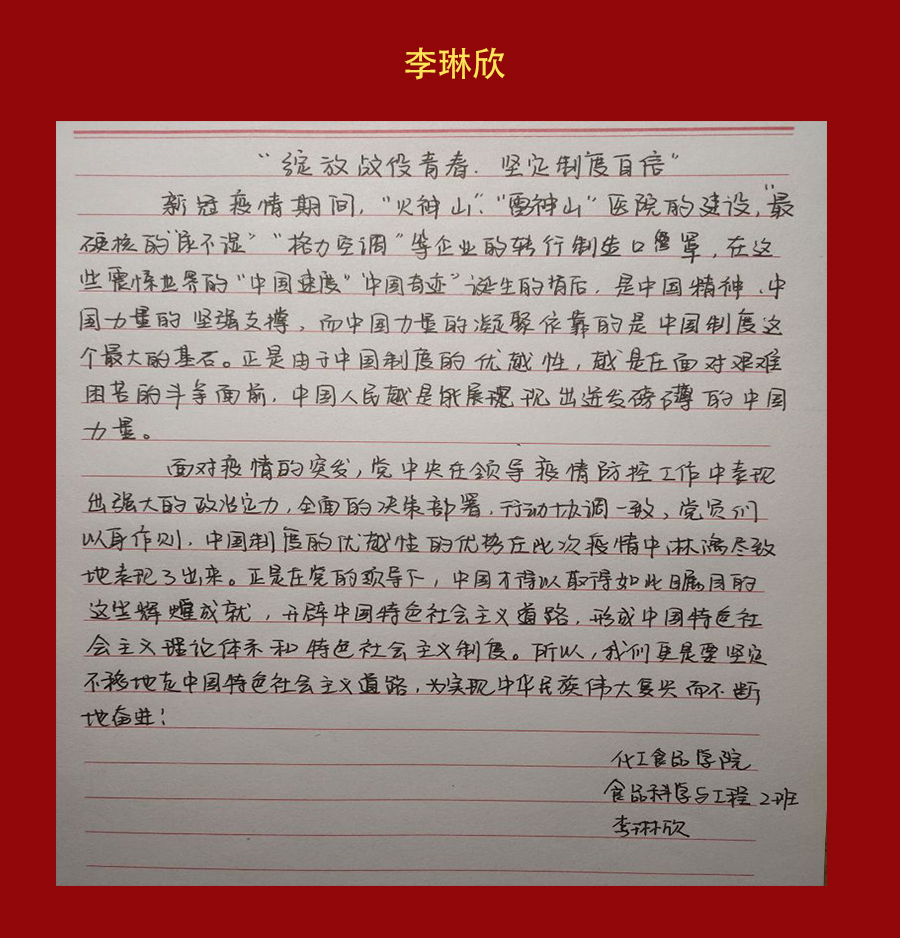 李琳欣
“绽放战役青春.坚定制度自信”
新冠疫情期间,“火神山”、“雷神山”医院的建设,“最
硬核的“尿不湿”“格力空调”等企业的转行制造口罩,在这
些震惊世界的“中国速度”“中国奇迹”诞生的背后,是中国精神、中
国力量的坚强支撑,而中国力量的凝聚依靠的是中国制度这
个最大的基石。正是由于中国制度的优越性,越是在面对艰难
困苦的斗争面前,中国人民越是能展现出迸发磅礴的中国
力量。
面对疫情的突发,党中央在领导疫情防控工作中表现
出强大的政治定力,全面的决策部署,行动协调一致,党员们
以身作则,中国制度的优越性的优势在此次疫情中淋漓尽致
地表现了出来。正是在党的领导下,中国才得以取得如此瞩目的
这些辉煌成就,开辟中国特色社会主义道路,形成中国特色社
会主义理论体系和特色社会主义制度。所以,我们更是要坚定
不移地走中国特色社会主义道路,为实现中华民族伟大复兴而不断
地奋进!
化工食品学院
食品科学与工程2班
李琳欣